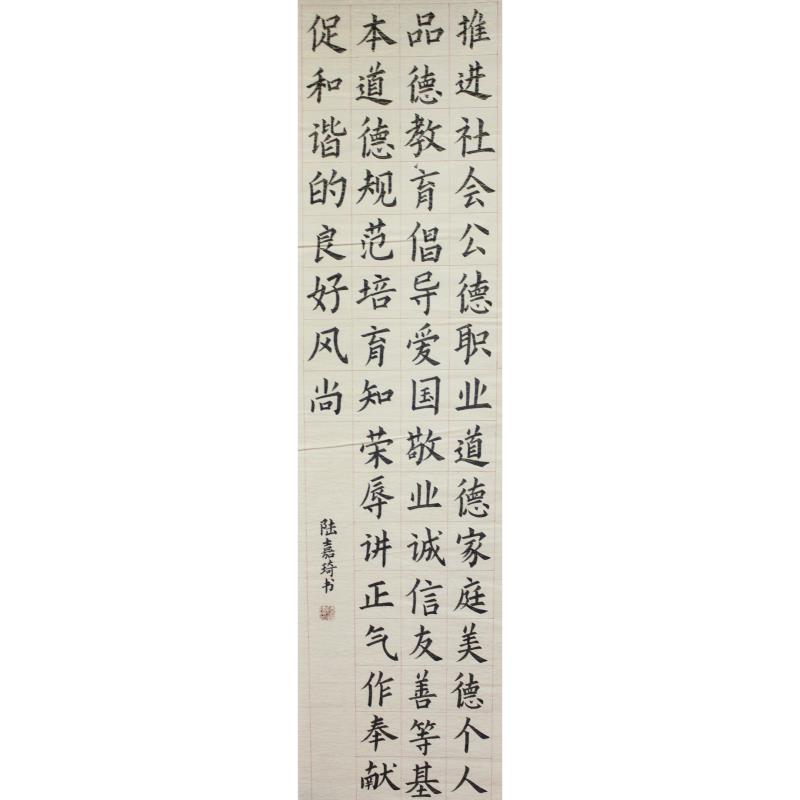 推进社会公德职业道德家庭美德个人
品德教育倡导爱国敬业诚信友善等基
本道德规范培育知荣辱讲正气作奉献
促和谐的良好风尚
陆嘉琦书